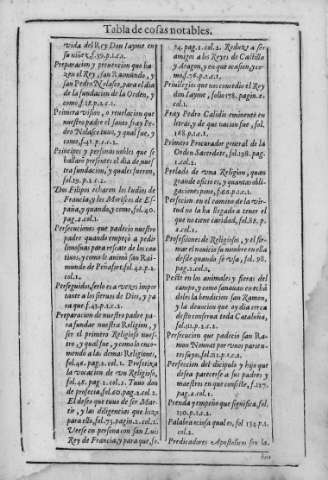 Tabla de cosas notables.
vida del Rey Don Iayme en
su niñez, f.39.p.1.c.1.
Preparacion y prevencion que ha
zen el Rey, san Raimundo, y
san Pedro Nolasco, para el dia
de la fundacion de la Orden, y
como, f.
Primera vision, o revelacion que
nuestro padre el santo fray Pe
dro Nolasco tuvo, y qual fue, y
como, f.
Principes y personas nobles que se
hallarõ presentes el dia de nues
tra fundacion, y quales fueron,
fol.
Dos Filipos echaron los Iudios de
Francia, y los Moriscos de Es
paña, y quando, y como, fol.40.
pag.2.col.1.
Persecuciones que padecio nuestro
padre quando empeço a pedir
limosnas para rescate de los cau
tivos, y como le animò san Rai
mundo de Peñafort, fol.42.p.2.
col.1.
Perseguidos, serlo es a vezes impor
tante a los siervos de Dios, y pa
ra que, f.43.p.1.c.1.
Preparacion de nuestro padre pa
ra fundar nuestra Religion, y
ser el primero Religioso nues
tro, y qual fue, y como lo enco
mendò a las demas Religiones,
fol.46. pag.2. col.1. Profetiza
la vocacion de un Religioso,
fol.48. pag.2. col.1. Tuvo don
de profecia, fol.60.pag.2.col.1.
El deseo que tuvo de ser Mar
tir, y las diligencias que hizo
para ello, fol.73.pagin.2.col.1.
Verse en persona con san Luis
Rey de Francia, y para que, fo.
74. pag.2. col.2. Reduxo a ser
amigos a los Reyes de Castilla
y Aragon, y en que ocasion, y co
mo, f.76.p.1.c.1.
Privilegios que nos concedio el Rey
don Iayme, folio 178. pagin.2.
col.1.
Fray Pedro Calidis eminente en
letras, y de que nacion fue, fol.
168.p.1.c.1.
Primero Procurador general de la
Orden Sacerdote, fol.198. pag.
1.col.2.
Perlado de una Religion, quan
grande oficio es, y quantas obli
gaciones pone,
Perfecion en el camino de la vir
tud no la ha llegado a tener el
que no tiene caridad, fol.
1.col.2.
Professiones de Religiosos, y el fir
mar el novicio su nombre en ella
desde quando se usa, fol. 98.
pag.2.col.1.
Peste en los animales y fieras del
campo, y como sanavan en echã
doles la bendicion san Ramon,
y la devocion que oy dia cerca
desto conserva toda Cataluña,
fol.
Persecucion que padecio san Ra
mon Nonnat por unos parien
tes suyos,
Perfeccion del dicipulo y hijo que
desea parecerse a sus padres y
maestros en que consiste, f.127.
pag.2.col.1.
Prenda y empeño que significa, fol.
130.p.1.c.2.
Palabra ociosa qual es, fol 132.p.1.
col.2.
Predicadores Apostolicos ser la